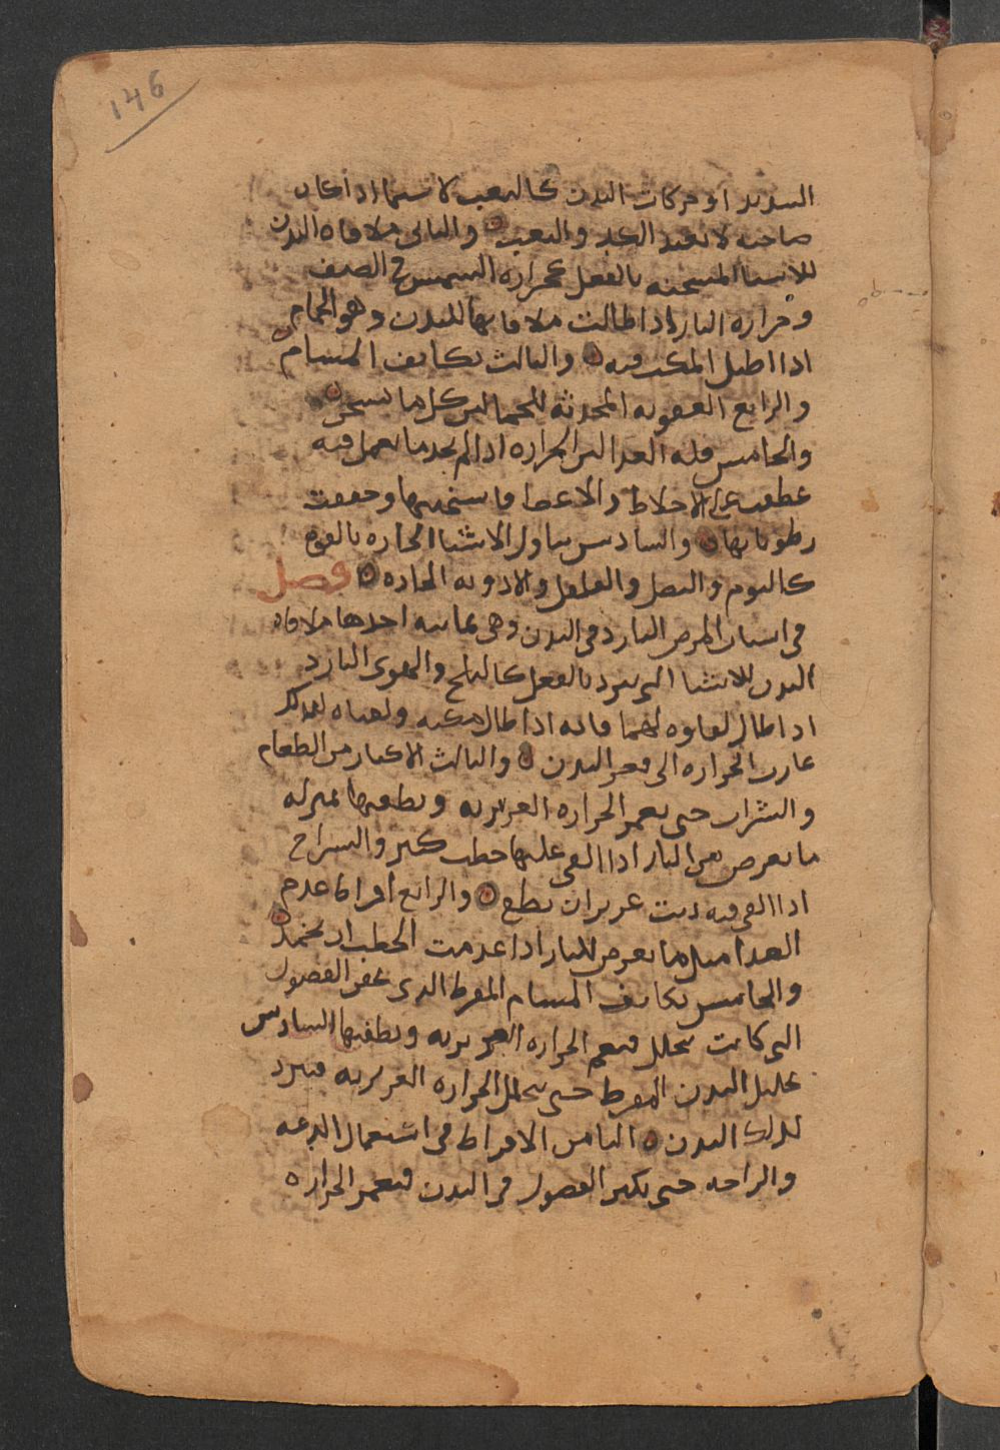 146
الشديد او حركات البدن كالتعب لا سيما اذا كان
صاحبه لا يعتد الكد والتعب ه والثاني ملاقاه البدن
للاشيا المسخنه بالفعل كحراره الشمس في الصيف
وحراره النار اذا طالت ملاقاتها للبدن وهو الحمام
اذا اطيل المكث فيه ه والثالث تكاثف المسام
والرابع العفونه المحدثه للحما لان كل ما يسخن ه
والخامس قله الغدا لان الحراره اذا لم تجد ما تعمل فيه
عطفت على الاخلاط والاعضا فاسخنتها وجففت
رطوباتها ه والسادس تناول الاشيا الحاره بالقوه
كالثوم والبصل والفلفل والادويه الحاده ه فصل
في اسباب المرض البارد في البدن وهي ثمانيه احدها ملاقاه
البدن للاشيا التي تبرد بالفعل كالثلج والهوى البارد
اذا طال لقاوه لهما فانه اذا طال مكثه ولقياه لذلك
غارت الحراره الى قعر البدن ه والثالث الاكثار من الطعام
والشراب حتى يغمر الحراره الغريزيه ويطفيها بمنزله
ما يعرض من النار اذا القي عليها حطب كثير والسراج
اذا القي فيه زيت غزير ان يطفى ه والرابع افراط عدم
الغدا مثل ما يعرض للنار اذا عدمت الحطب ان تخمد ه
والخامس تكاثف المسام المفرط الذي يحقن الفضول
التي كانت تحلل فيغم الحراره الغريزيه ويطفيها السادس
تحليل البدن المفرط حتى تحلل الحراره الغريزيه فيبرد
لذلك البدن ه الثامن الافراط في استعمال الدعه
والراحه حتى تكثر الفضول في البدن فيغمر الحراره